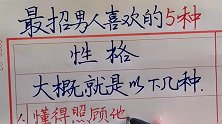 最招男人喜欢的5种
性格
大概就是以下几种.
1.懂得照顾他